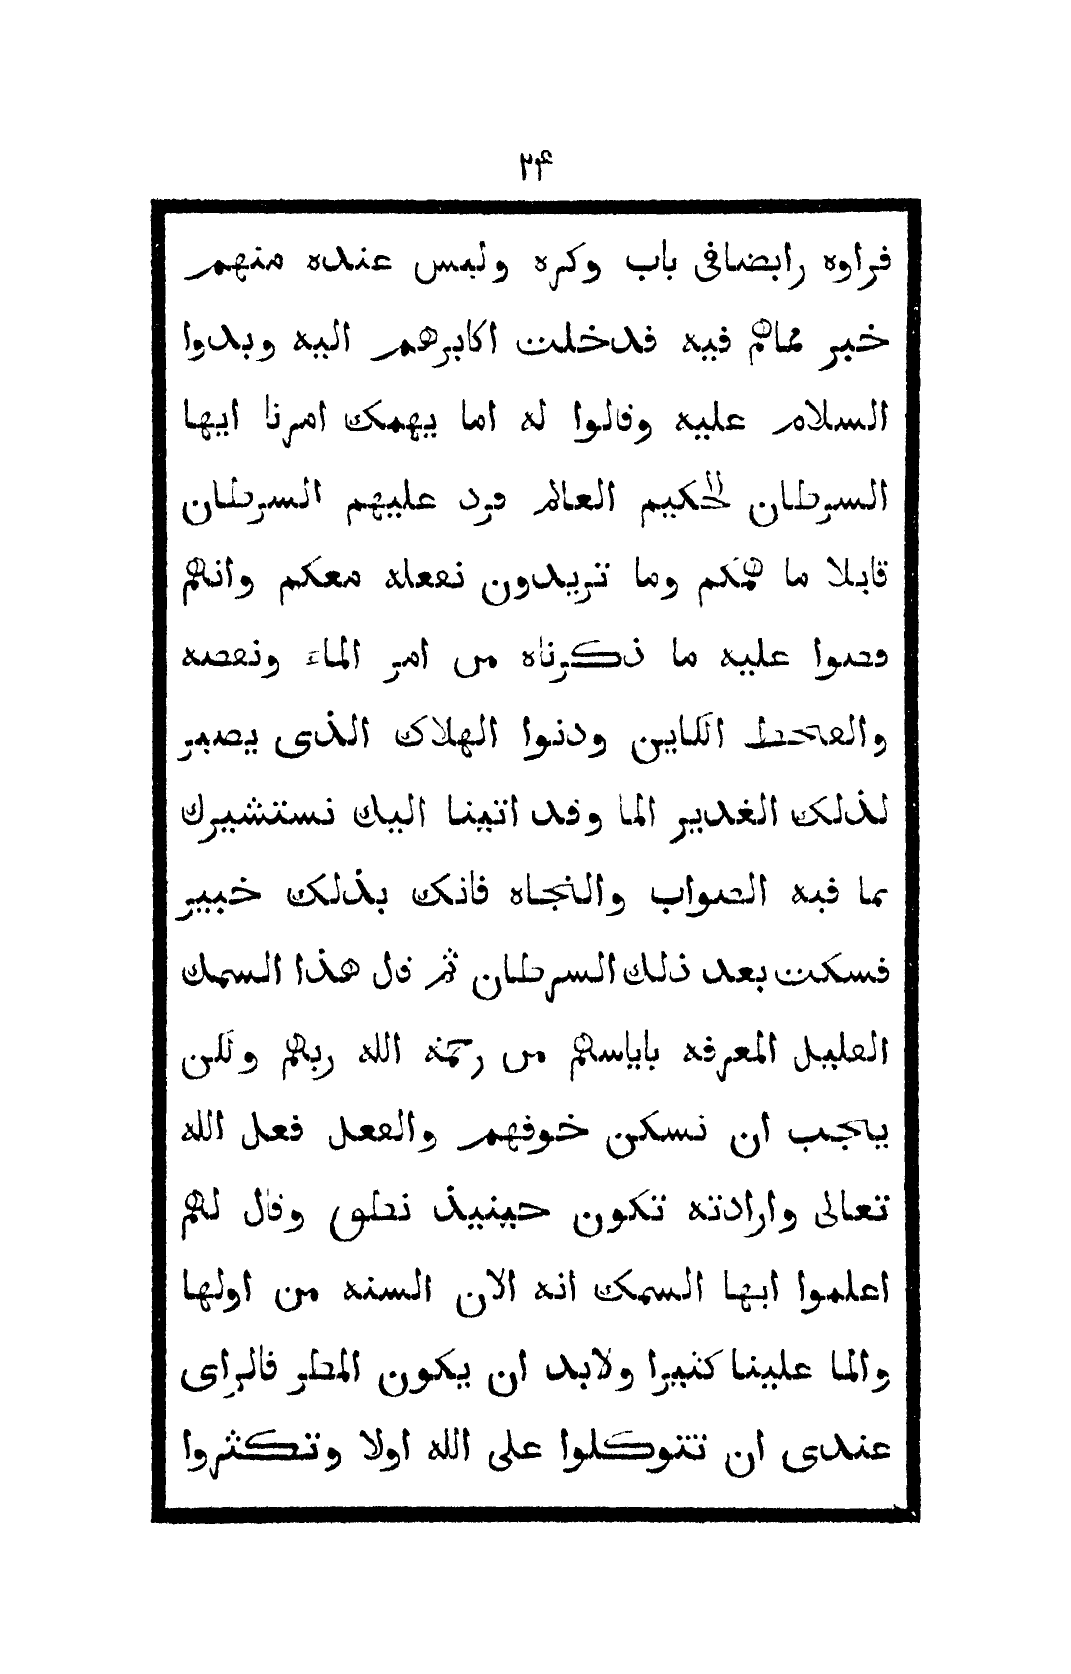 ٢۴
فراوه رابضا فى باب وكره وليس عنده منهم
خبر مماهم فيه فدخلت اكابرهم اليه وبدوا
السلام عليه وقالوا له اما يهمك امرنا ايها
السرطان الحكيم العالم فرد عليهم السرطان
قايلا ما همكم وما تريدون نفعله معكم وانهم
قصوا عليه ما ذكرناه من امر الماء ونقصه
والقحط الكاين ودنوا الهلاك الذى يصير
لذلك الغدير الما وقد اتينا اليك نستشيرك
بما فيه الصواب والنجاه فانك بذلك خبير
فسكت بعد ذلك السرطان ثم قال هذا السمك
القليل المعرفه باياسهم من رحمة الله ربهم ولكن
يجب ان نسكن خوفهم والفعل فعل الله
تعالى وارادته تكون حينيذ نطق وقال لهم
اعلموا ايها السمك انه الان السنه من اولها
والما علينا كثيرا ولابد ان يكون المطر فالراى
عندى ان تتوكلوا على الله اولا وتكثروا